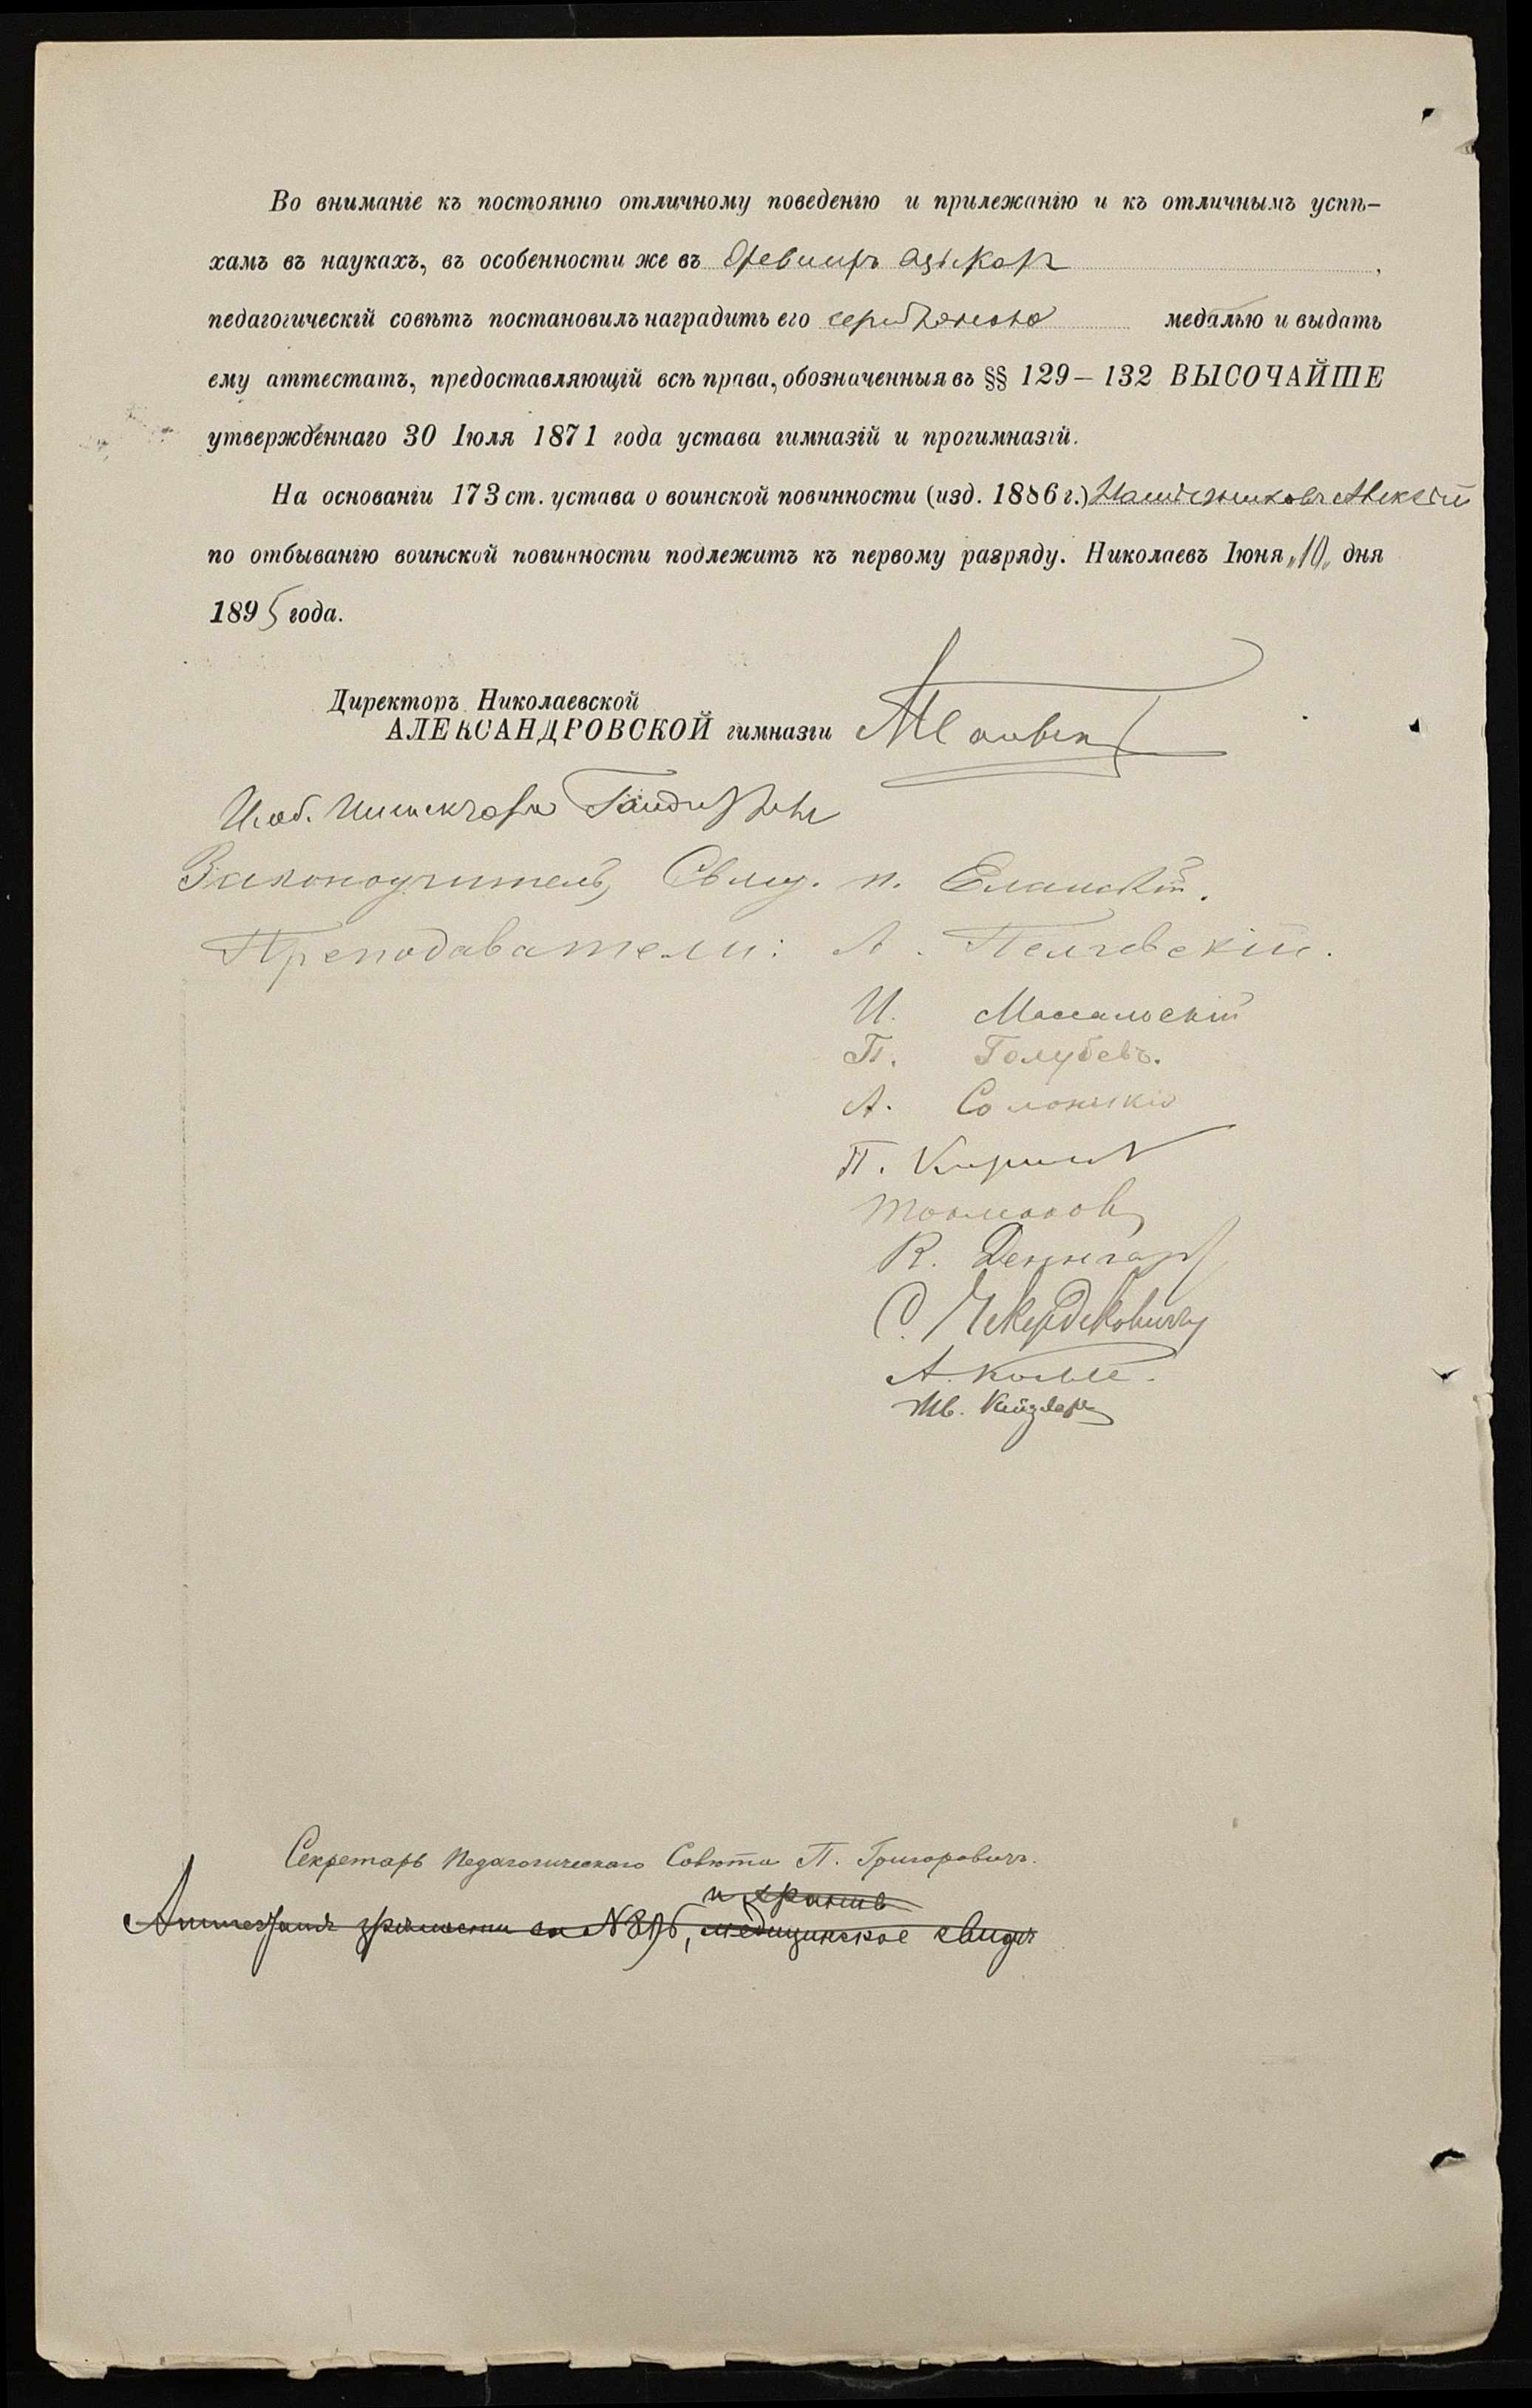 Во вниманіе къ постоянно отличному поведенію и прилежанію и къ отличнымъ успѣ-
хамъ въ наукахъ, въ особенности же въ древнихъ языкахъ,
педагогическій совѣтъ постановилъ наградить его серебряною медалью и выдать
ему аттестатъ, предоставляющій всѣ права, обозначенныя въ §§ 129–132 ВЫСОЧАЙШЕ
утвержденнаго 30 Іюля 1871 года устава гимназій и прогимназій.
На основаніи 173 ст. устава о воинской повинности (изд. 1886 г.) Алексѣй
по отбыванію воинской повинности подлежитъ къ первому разряду. Николаевъ Іюня „10„ дня
1895 года.
Директоръ Николаевской
АЛЕКСАНДРОВСКОЙ гимназіи
И. об. Инспектора
Законоучитель, Свящ. п. Еланскій.
Преподаватели: А.
И. Массальскій
П. Голубевъ.
А. Солонскій
П.
Токмаковъ
К. Деннгардъ
С.
А.
Секретарь Педагогическаго Совѣта П. Григоровичъ.
и копію
Аттестатъ зрѣлости за №896, медицинское свидѣ